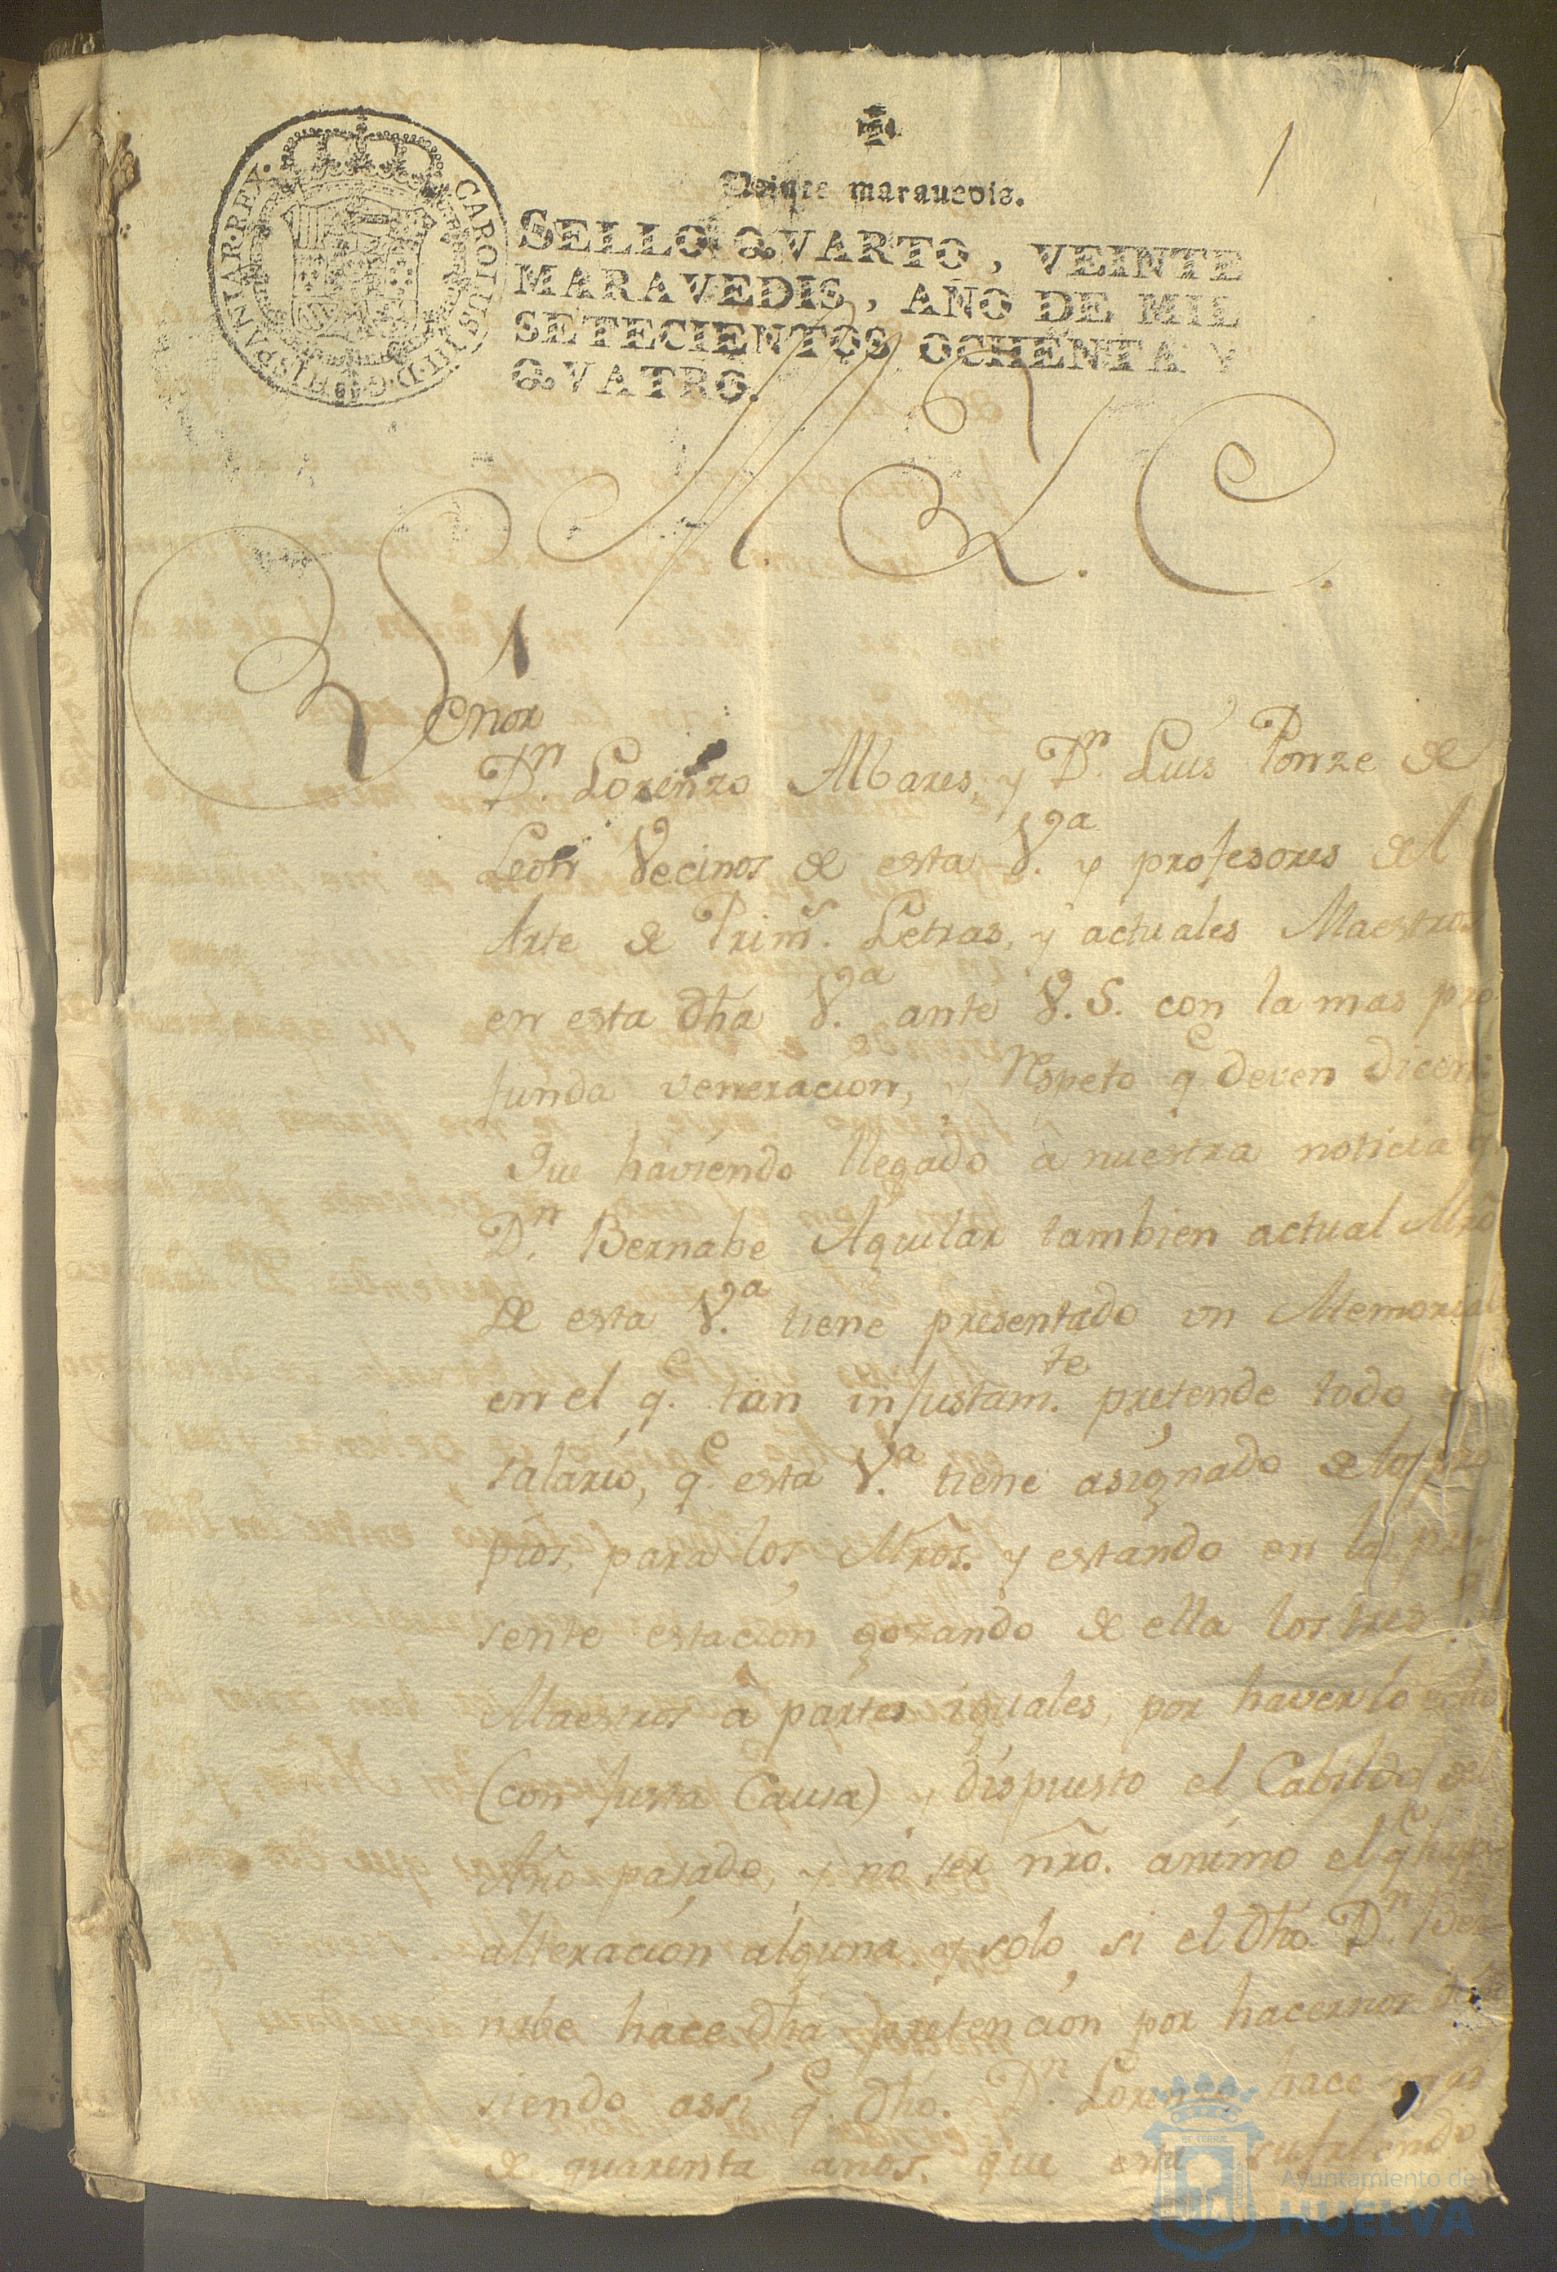 1
Veinte marauedis.
SELLO QVARTO, VEINTE
MARAVEDIS, AÑO DE MIL
SETECIENTOS OCHENTA Y
QVATRO.
CAROLUS III D.G. HISPANIAR. REX.
Señor
Dn. Lorenzo Albares, y Dn. Luis Ponze de
Leon Vecinos de esta Va. y profesores del
Arte de Prims. Letras, y actuales Maestros
en esta dha Va. ante V.S. con la mas pro-
funda veneracion, y Respeto qe deven dicen:
Que haviendo llegado à nuestra noticia q.
Dn. Bernabe Aguilar tambien actual Mro
de esta Va. tiene presentado un Memorial
en el qe. tan injustamte. pretende todo
salario, qe. esta Va. tiene asignado de los pro-
pios, para los Mros. y estando en la pre-
sente estacion gozando de ella los tres
Maestros à partes iguales, por haverlo echo
(con justa Causa) y dispuesto el Cabildo del
Año pasado, y no ser nro. animo el qe haya
alteracion alguna y solo si el dho Dn. Ber-
nabe hace dha pretencion por hacernos
siendo assi qe. dho. Dn. Lorenzo hace mas
de quarenta años. que esta sufriendo
Ayuntamiento de
HUELVA